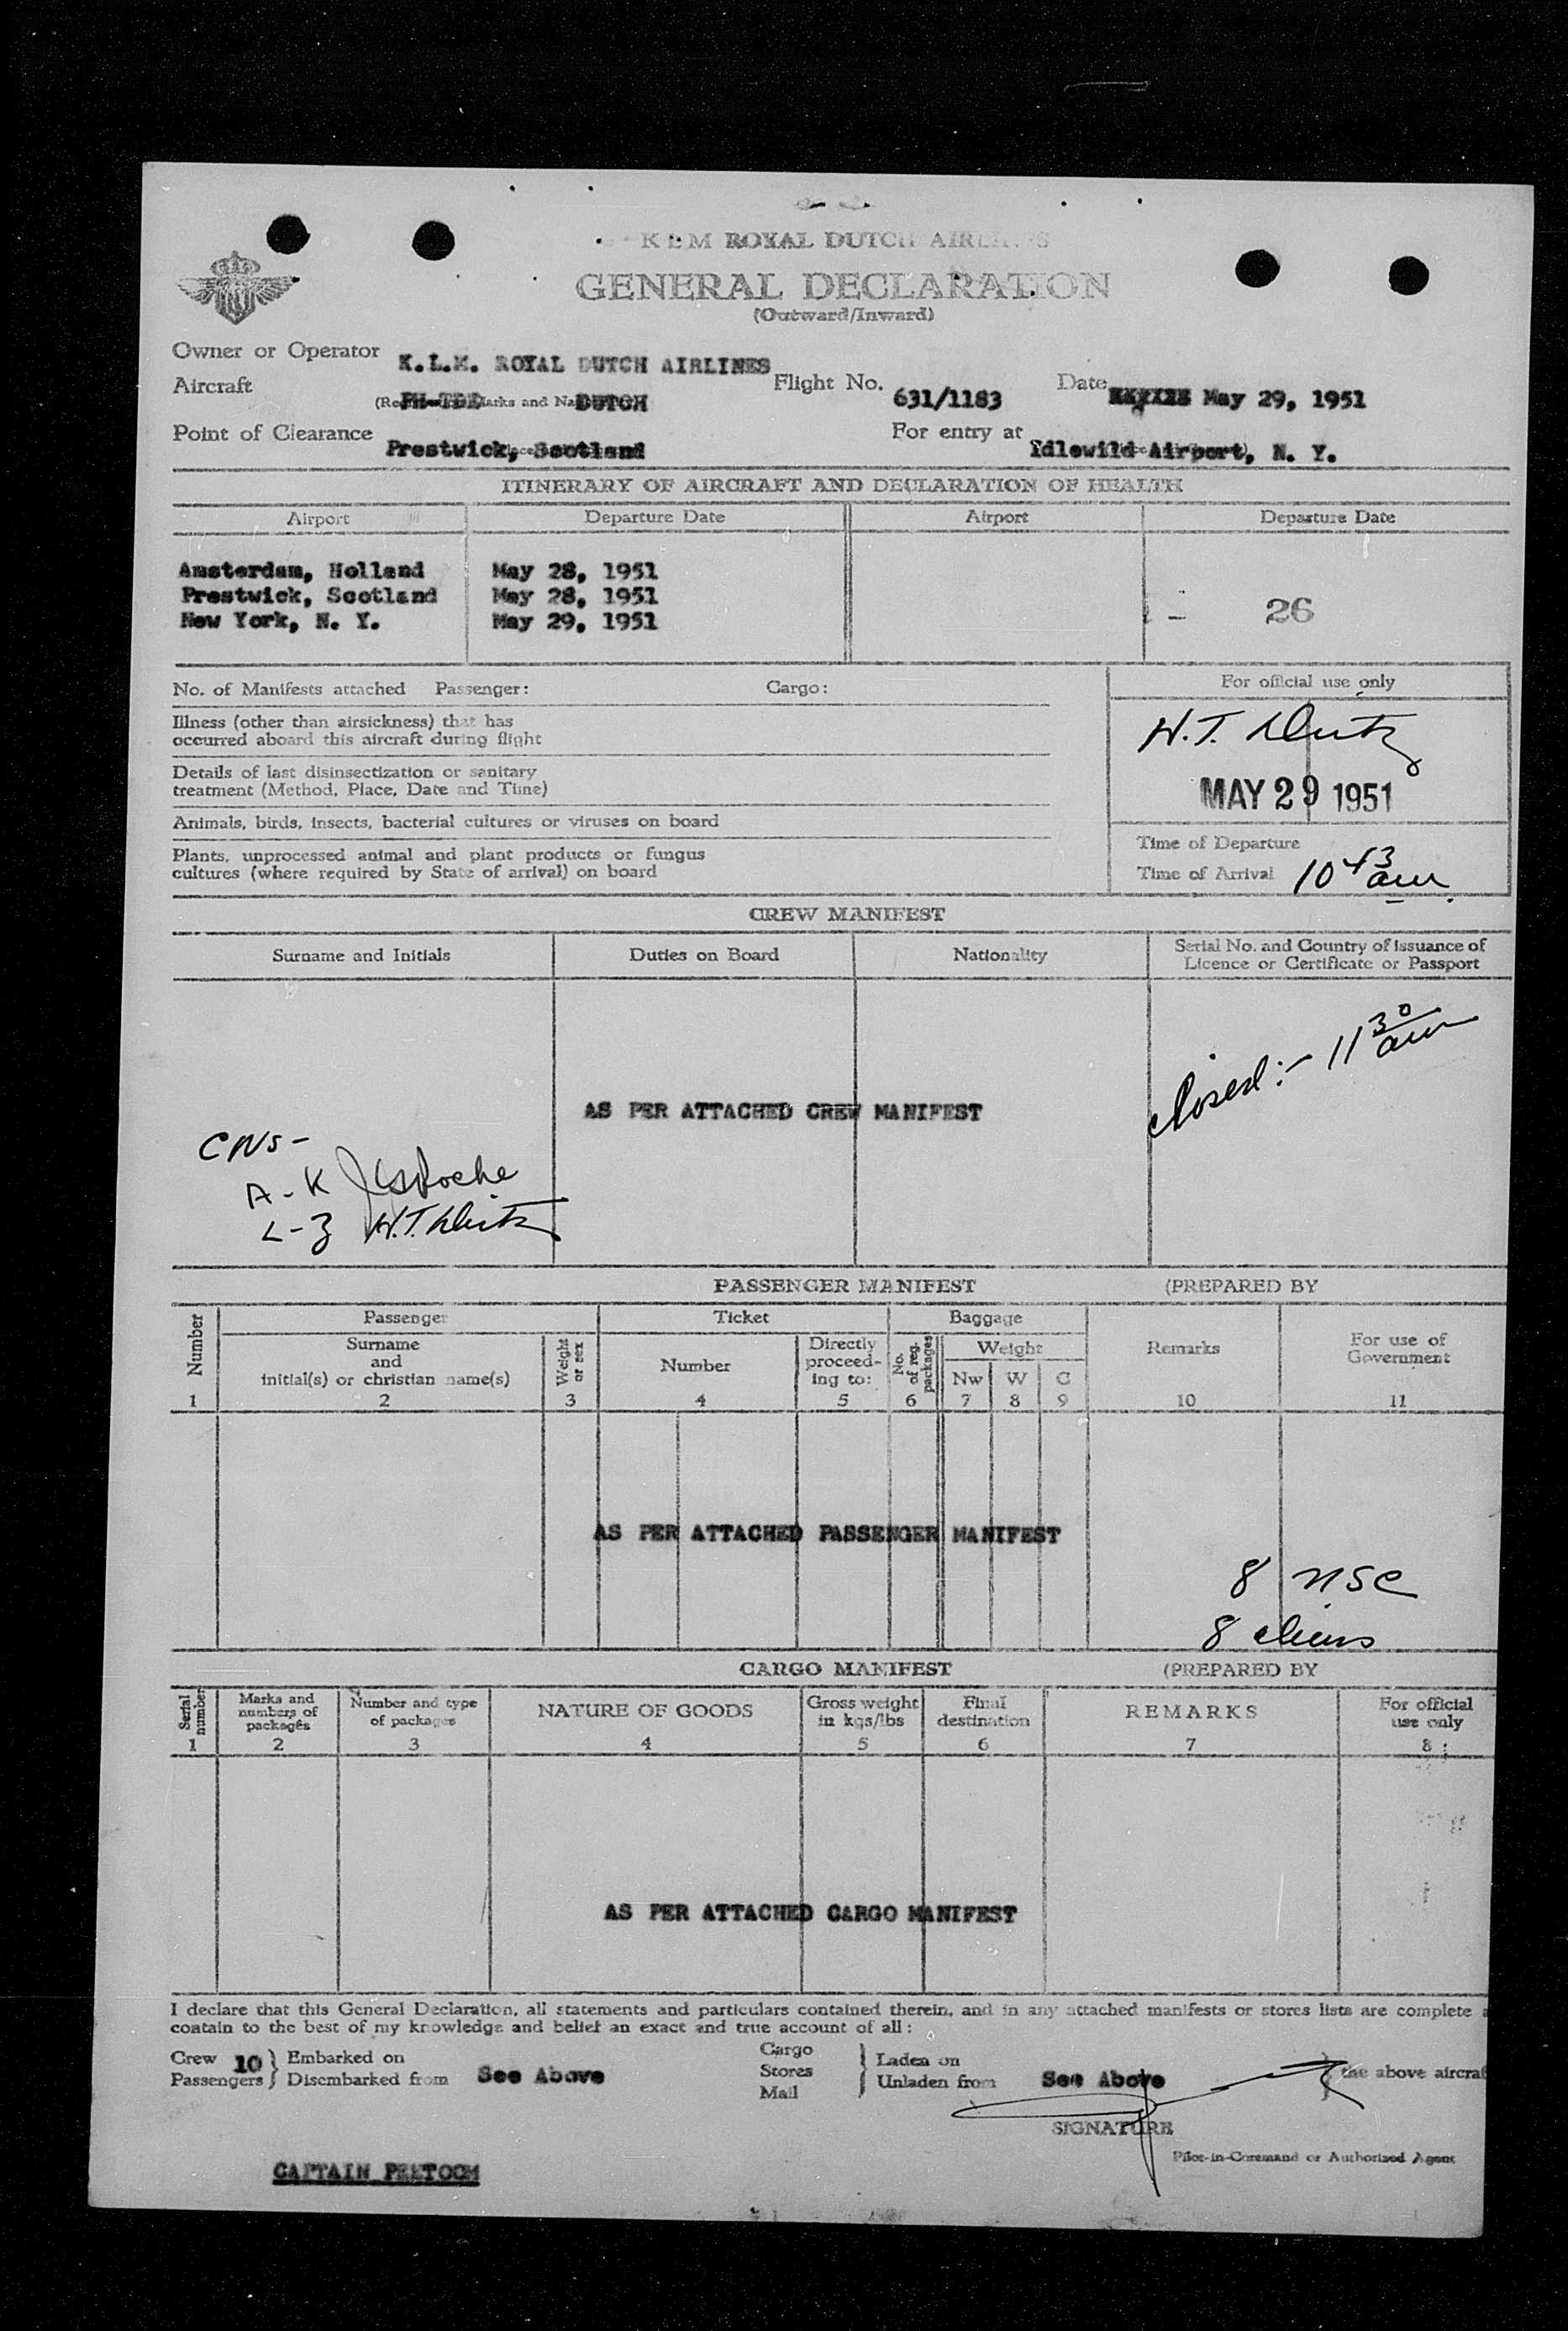 KLM ROYAL DUTCH AIRLINES
GENERAL DECLARATION
(Outward/Inward)
Owner or Operator K.L.M. ROYAL DUTCH AIRLINES
Aircraft PH-TDE DUTCH Flight No. 631/1183 Date May 29, 1951
Point of Clearance Prestwick, Scotland For entry at Idlewild Airport, N. Y.
ITINERARY OF AIRCRAFT AND DECLARATION OF HEALTH
Airport Departure Date Airport Departure Date
Amsterdam, Holland May 28, 1951
Prestwick, Scotland May 28, 1951
New York, N. Y. May 29, 1951
26
No. of Manifests attached Passenger: Cargo:
For official use only
Illness (other than airsickness) that has
occurred aboard this aircraft during flight
Details of last disinsectization or sanitary
treatment (Method, Place, Date and Time)
Animals, birds, insects, bacterial cultures or viruses on board
Plants, unprocessed animal and plant products or fungus
cultures (where required by State of arrival) on board
H.T.
MAY 29 1951
Time of Departure
Time of Arrival 10 43 am
CREW MANIFEST
Surname and Initials Duties on Board Nationality Serial No. and Country of issuance of
Licence or Certificate or Passport
closed:- 11 30 am
AS PER ATTACHED CREW MANIFEST
CNS-
A-K
L-Z H.T.
PASSENGER MANIFEST (PREPARED BY
Number Passenger Ticket Baggage
Surname
and
initial(s) or christian name(s)
Weight or sex
Number
Directly
proceed-
ing to:
No. of reg. packages
Weight
Nw W C
Remarks
For use of
Government
1 2 3 4 5 6 7 8 9 10 11
AS PER ATTACHED PASSENGER MANIFEST
8 nsc
8
CARGO MANIFEST (PREPARED BY
Serial number
Marks and
numbers of
packages
Number and type
of packages
NATURE OF GOODS
Gross weight
in kgs/lbs
Final
destination
REMARKS
For official
use only
1 2 3 4 5 6 7 8
AS PER ATTACHED CARGO MANIFEST
I declare that this General Declaration, all statements and particulars contained therein, and in any attached manifests or stores lists are complete
contain to the best of my knowledge and belief an exact and true account of all:
Crew 10 Embarked on
Passengers Disembarked from See Above
Cargo
Stores
Mail
Laden on
Unladen from See Above the above aircraf
SIGNATURE
Pilot-in-Command or Authorized Agent
CAPTAIN